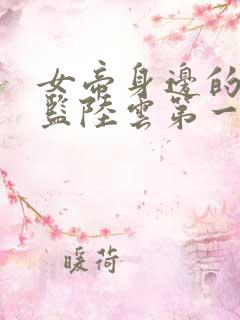 女帝身邊的
監陸雲第一
暖荷